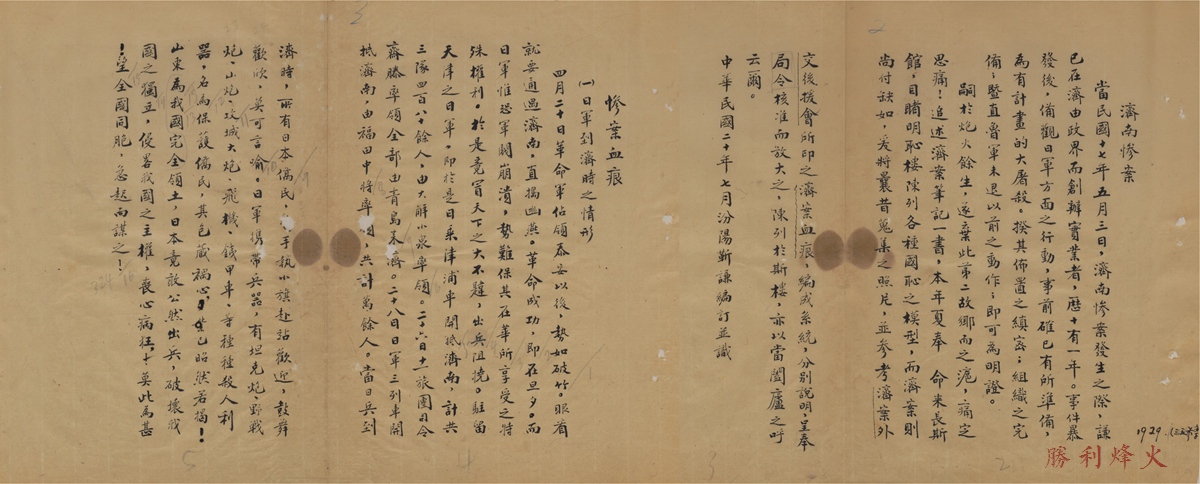 濟南慘案
當民國十七年五月三日，濟南慘案發生之際，謙
已在濟由政界而創辦實業者，歷十有一年。事件暴
發後，備觀日軍方面之行動，事前確已有所準備，
為有計畫的大屠殺。揆其佈置之縝密；組織之完
備；暨直魯軍未退以前之動作；即可為明證。
嗣於炮火餘生，遂棄此第二故鄉而之滬，痛定
思痛；追述濟案筆記一書，本年夏奉 命來長斯
館，目睹明恥樓陳列各種國恥之模型，而濟案則
尚付缺如，爰將曩昔蒐集之照片，並參考濟案外
交後援會所印之濟案血痕，編成系統，分別說明，呈奉
局令核准而放大之，陳列於斯樓，亦以當闔廬之呼
云爾。
中華民國二十年七月汾陽靳謙編訂並識
慘案血痕
(一)日軍到濟時之情形
四月二十日革命軍佔領泰安以後，勢如破竹。眼看
就要通過濟南，直搗幽燕。革命成功，即在旦夕。而
日軍惟恐軍閥崩潰，勢難保其在華所享受之特
殊權利。於是竟冒天下之大不韙，出兵阻撓。駐留
天津之日軍。即於是日乘津浦車開抵濟南，計共
三隊四百八十餘人，由大辭小泉率領。二十六日十一旅團司令
齋藤率領全部由青島來濟。二十八日日軍三列車開
抵濟南，由福田中將率領，共計萬餘人。當日兵到
濟時，所有日本僑民，手執小旗赴站歡迎，鼓舞
歡欣，莫可言喻。日軍携帶兵器，有坦克炮、野戰
炮、山炮、攻城大炮、飛機、鉄甲車、等種種殺人利
器，名為保護僑民其包藏禍心，已昭然若揭！
山東為我國完全領土，日本竟敢公然出兵，破壞我
國之獨立，侵畧我國之主權，喪心病狂，莫此為甚
！望全國同胞，急起而謀之！
1929
勝利烽火
2
3
4
5